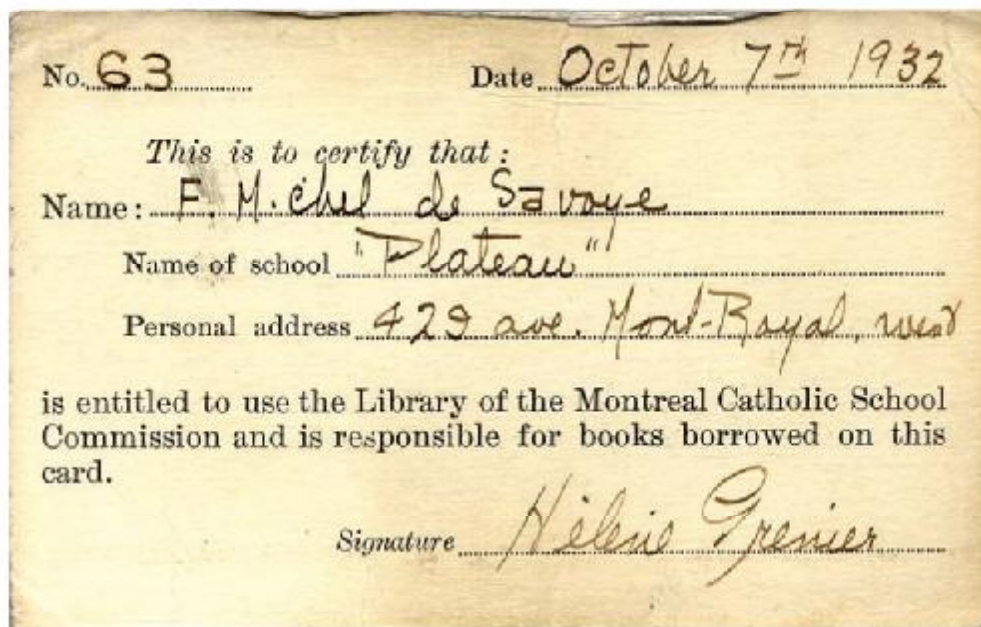 No. 63 Date October 7th 1932
This is to certify that :
Name : F. Michel de Savoye
Name of school "Plateau"
Personal address 429 ave. Mont-Royal, west
is entitled to use the Library of the Montreal Catholic School
Commission and is responsible for books borrowed on this
card.
Signature Hélène Grenier